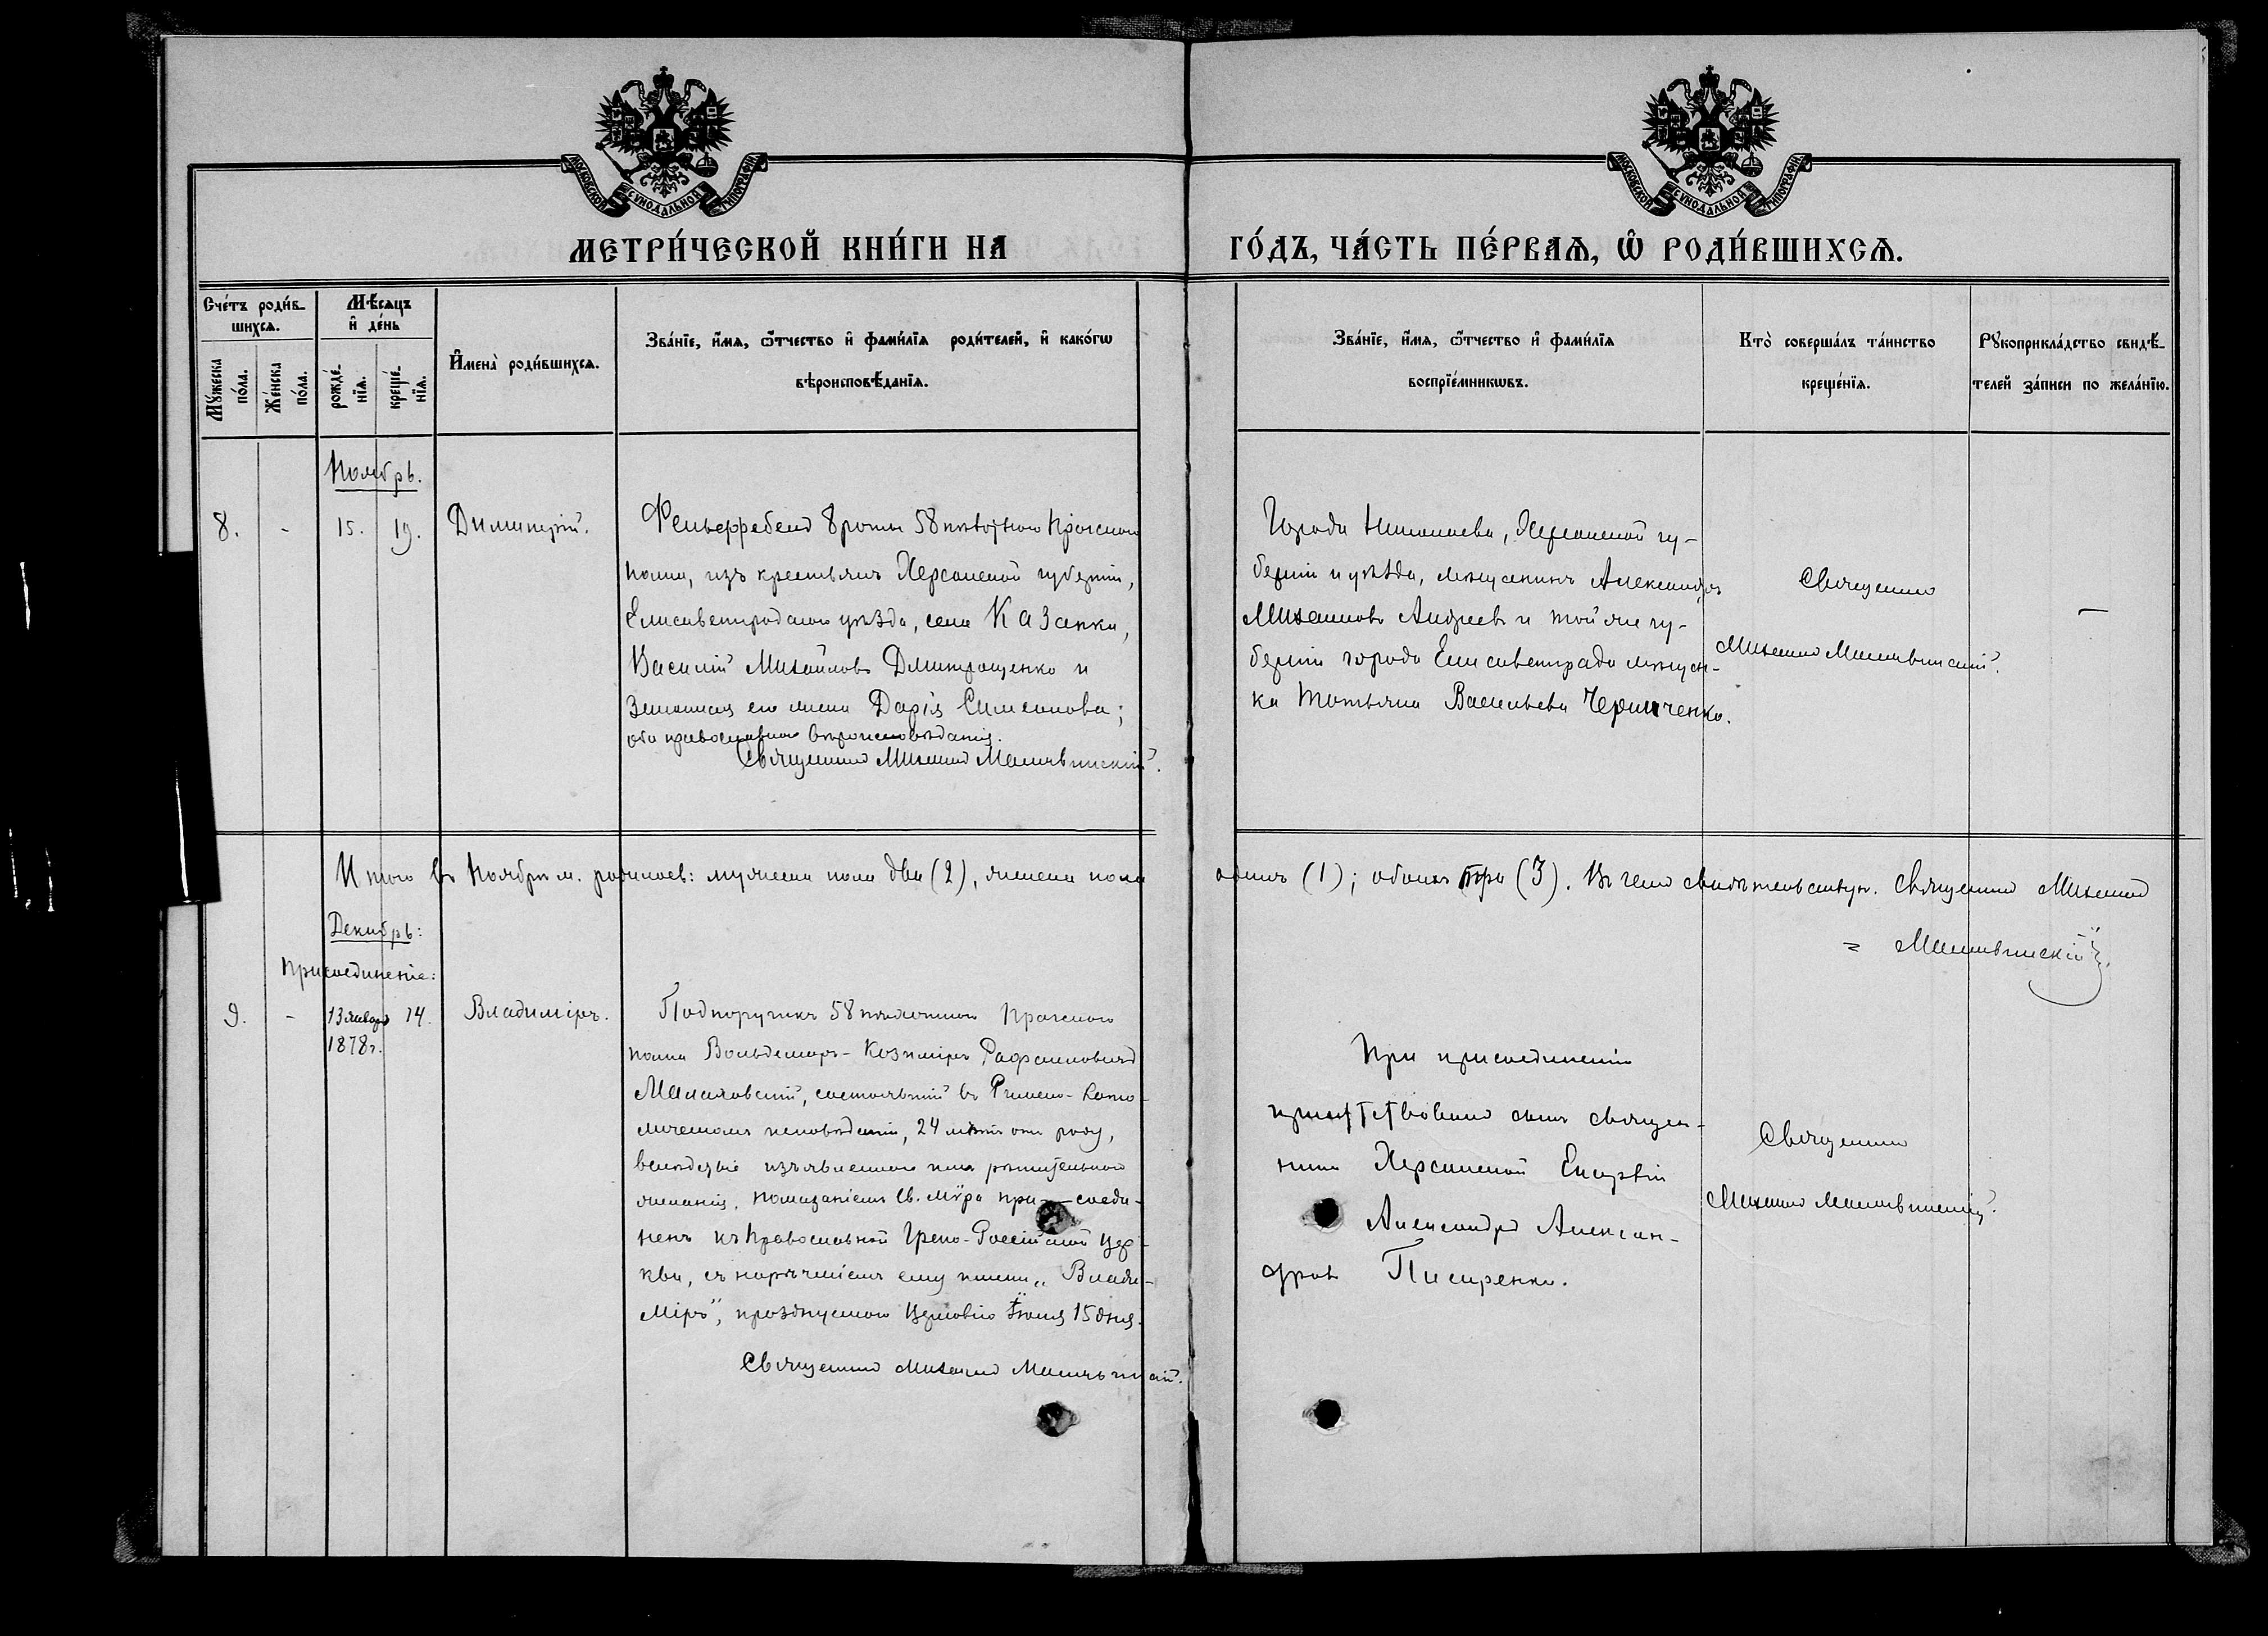 МОСКОВСКОЙ СѴНОДАЛЬНОЙ ТИПОГРАФІИ
МОСКОВСКОЙ СѴНОДАЛЬНОЙ ТИПОГРАФІИ
МЕТРИ́ЧЕСКОЙ КНИ́ГИ НА ГО́ДЪ, ЧА́СТЬ ПЕ́РВАѦ, Ѡ҆ РОДИ́ВШИХСѦ.
Сче́тъ роди́в-
шихсѧ.
Мꙋ́жеска
по́ла.
Же́нска
по́ла.
Мѣ́сѧцъ
и҆ де́нь
рожде́-
нїѧ.
креще́-
нїѧ.
И҆мена̀ роди́вшихсѧ.
Зва́нїе, и҆́мѧ, ѻ҆́тчество и҆ фами́лїѧ роди́телей, и҆ како́гѡ
вѣроисповѣ́данїѧ.
Зва́нїе, и҆́мѧ, ѻ҆́тчество и҆ фами́лїѧ
воспрїе́мникѡвъ.
Кто̀ соверша́лъ та́инство
креще́нїѧ.
Рꙋкоприкла́дство свидѣ́-
телей за́писи по жела́нїю.
Ноябрь.
8.
-
15.
19.
Димитрій.
Фельдфебель 8 роты 58 пѣхотнаго Прагскаго
полка, изъ крестьянъ Херсонской губерніи,
Елисаветградскаго уѣзда, села Казанки,
Василій Михайловъ Дмитрощенко и
законная его жена Дарія Симеонова;
оба православнаго вѣроисповѣданія.
Священникъ Михаилъ
Города Николаева, Херсонской гу-
берніи и уѣзда, мѣщанинъ Александръ
Михаиловъ Андреевъ и той же гу-
берніи города Елисаветграда мѣщан-
ка Татьяна Васильева
Священникъ
Михаилъ
—
Итого въ Ноябрѣ м. родилось: мужеска пола два (2), женска пола одинъ (1); обоихъ три (3). Въ чемъ свидѣтельствую. Священникъ Михаилъ
Декабрь:
Присоединеніе:
9.
-
13 января
1878 г.
14.
Владиміръ.
Подпоручикъ 58 пѣхотнаго Прагскаго
полка Вольдемаръ-Козиміръ Рафаиловичъ
Малаховскій, состоявшій въ Римско-Като-
лическомъ исповѣданіи, 24 лѣтъ отъ роду,
вслѣдствіе изъявленнаго имъ рѣшительнаго
желанія, помазаніемъ Св. Мѵра при-соеди-
ненъ къ Православной Греко-Россійской Цер-
кви, съ нареченіемъ ему имени „Влади-
міръ“, празднуемаго Церковію Іюля 15 дня.
Священникъ Михаилъ
При присоединеніи
присутствовалъ сынъ священ-
ника Херсонской Епархіи
Александръ Алексан-
дровъ Писаренко.
Священникъ
Михаилъ